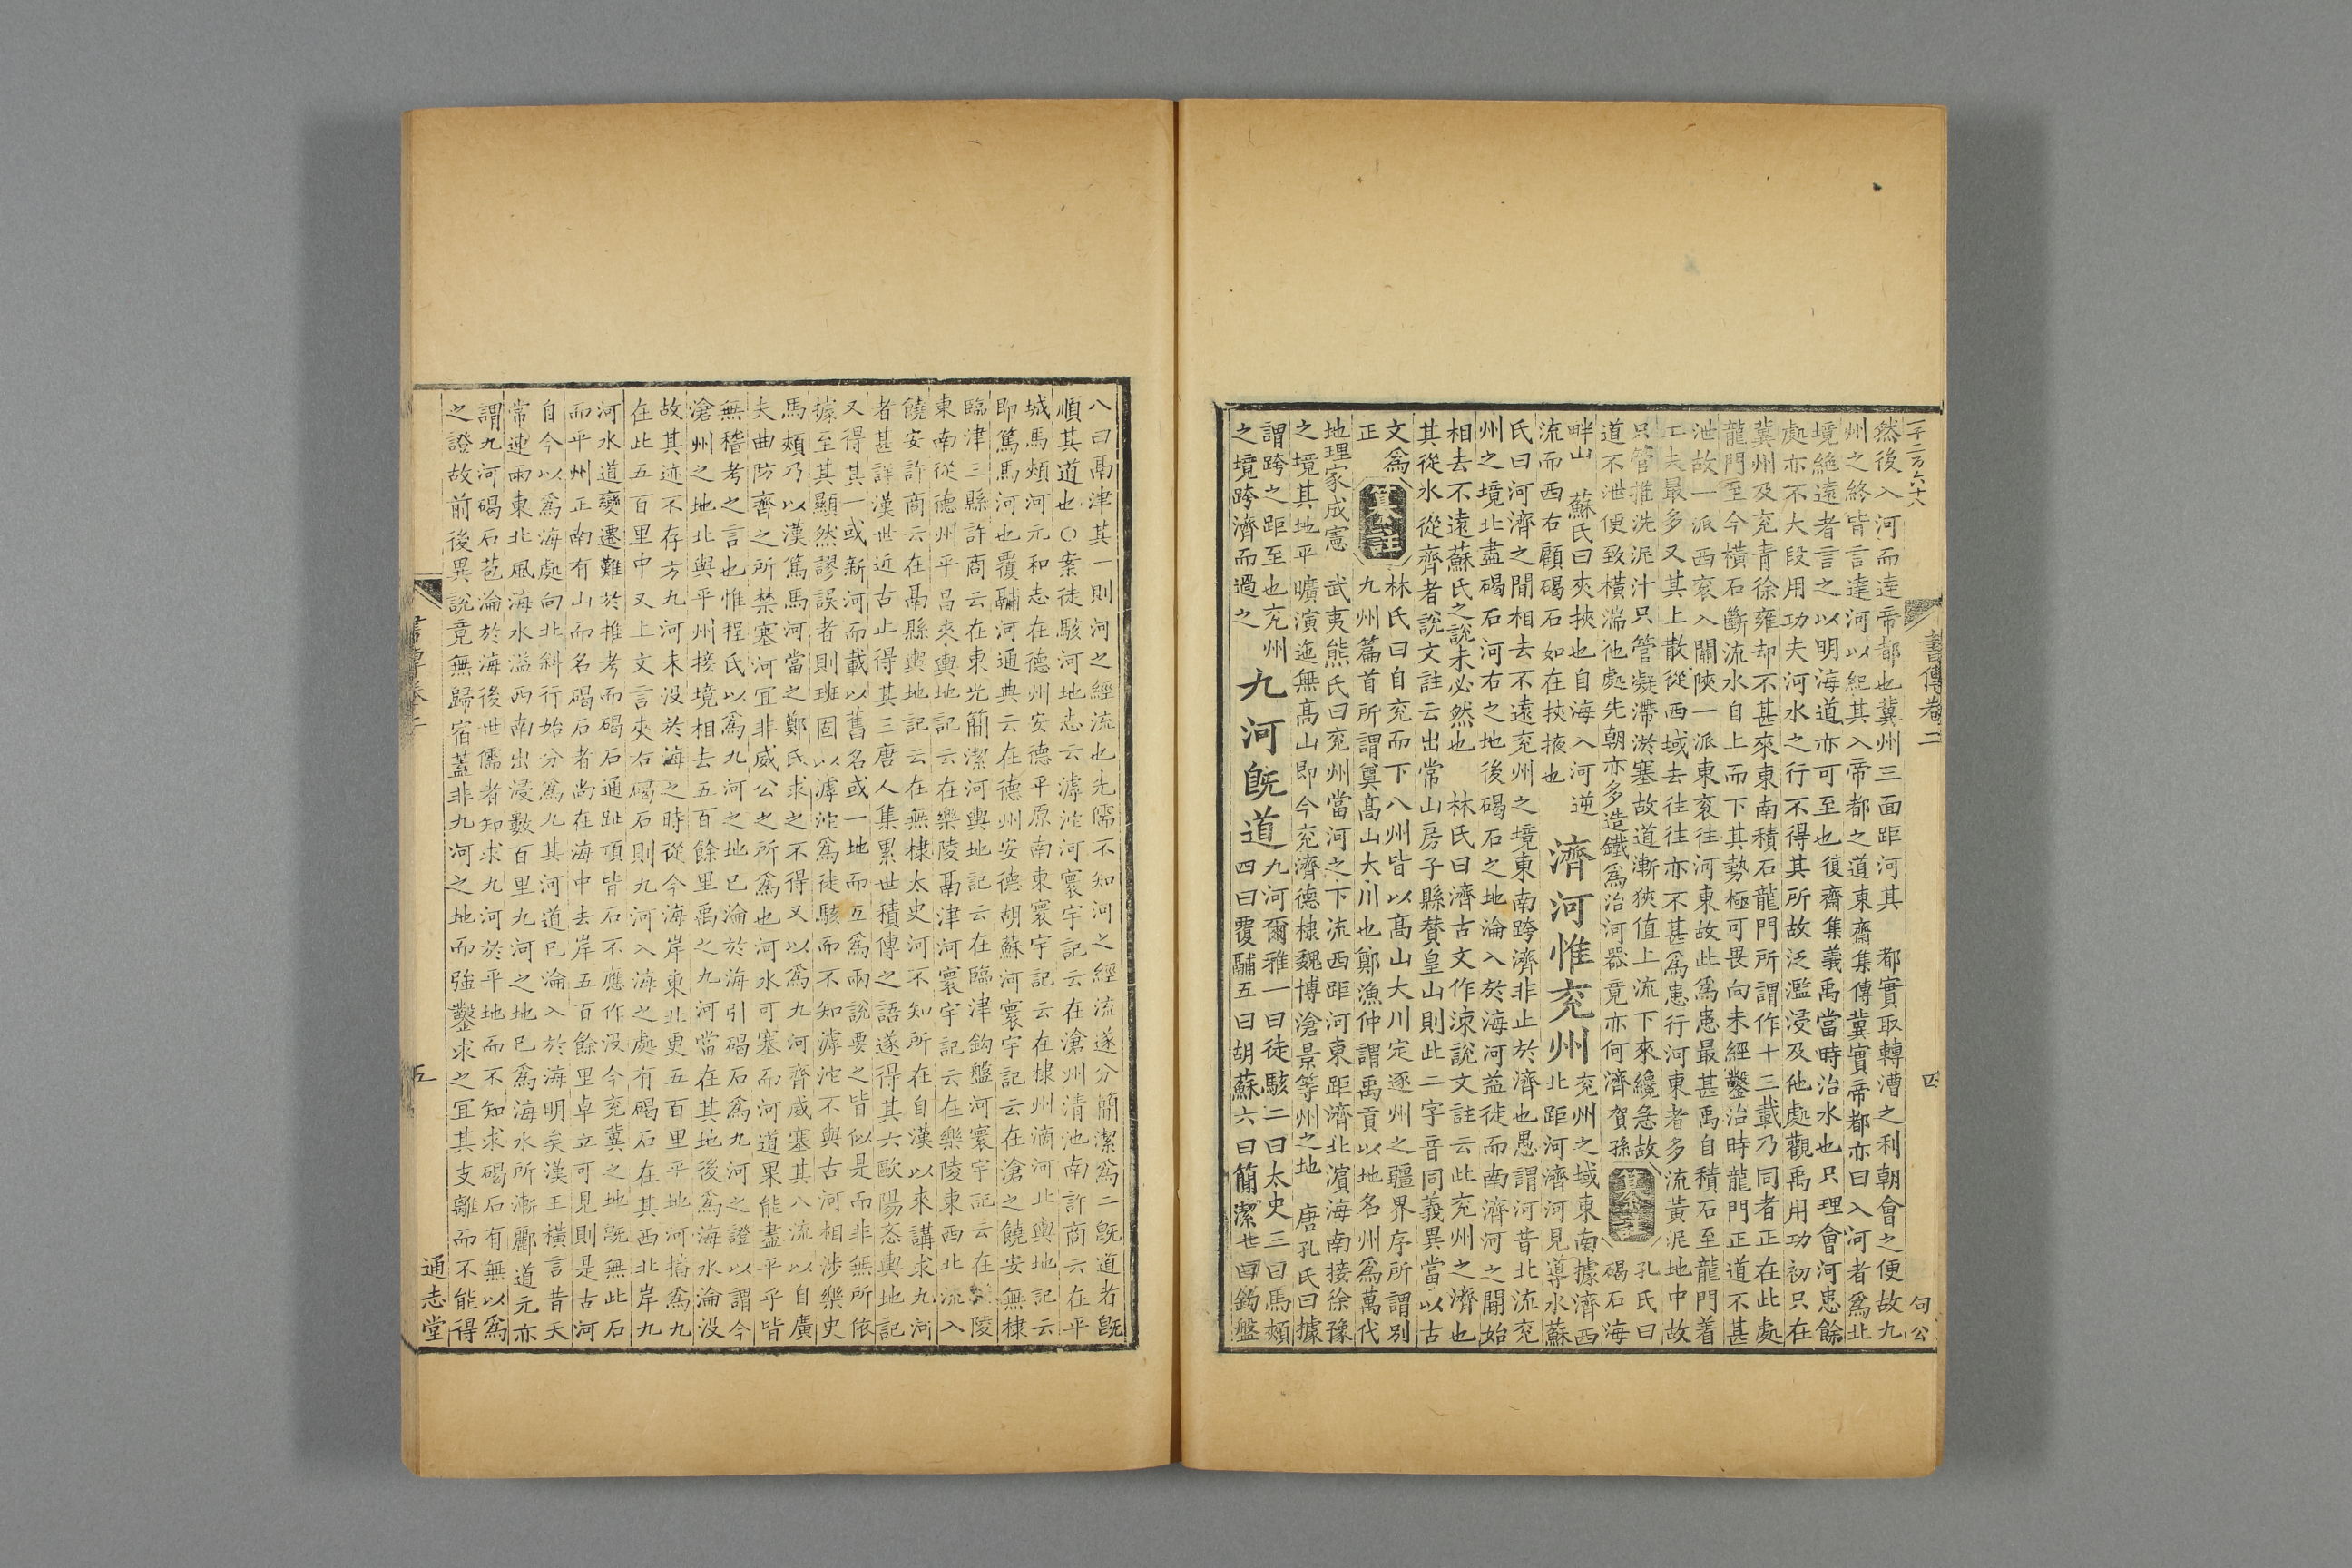 一千二万六十八
書傳卷二
四
句公
然後入河而達帝都也冀州三面距河其 都實取轉漕之利朝會之便故九
州之終皆言達河以紀其入帝都之道東齋集傳冀實帝都亦曰入河者爲北
境絶遠者言之以明海道亦可至也復齋集義禹當時治水也只理會河患餘
處亦不大段用功夫河水之行不得其所故泛濫浸及他處觀禹用功初只在
冀州及兖青徐雍却不甚來東南積石龍門所謂作十三載乃同者正在此處
龍門至今橫石斷流水自上而下其勢極可畏向未經鑿治時龍門正道不甚
泄故一派西衮入關陜一派東衮往河東故此爲患最甚禹自積石至龍門着
工夫最多又其上散從西域去往往亦不甚爲患行河東者多流黄泥地中故
只管推洗泥汁只管凝滯淤塞故道漸狹值上流下來纔急故
道不泄便致橫湍他處先朝亦多造鐵爲治河器竟亦何濟賀孫
纂註
孔氏曰
碣石海
畔山 蘇氏曰夾挾也自海入河逆
流而西右顧碣石如在挾掖也
濟河惟兖州
兖州之域東南據濟西
北距河濟河見導水蘇
氏曰河濟之間相去不遠兖州之境東南跨濟非止於濟也愚謂河昔北流兖
州之境北盡碣石河右之地後碣石之地淪入於海河益徙而南濟河之間始
相去不遠蘇氏之說未必然也 林氏曰濟古文作泲說文註云此兖州之濟也
其從水從齊者說文註云出常山房子縣賛皇山則此二字音同義異當以古
文爲
正
集註
林氏曰自兖而下八州皆以髙山大川定逐州之疆界序所謂別
九州篇首所謂奠髙山大川也鄭漁仲謂禹貢以地名州爲萬代
地理家成憲 武夷熊氏曰兖州當河之下流西距河東距濟北濵海南接徐豫
之境其地平曠演迤無髙山即今兖濟德棣魏博滄景等州之地 唐孔氏曰據
謂跨之距至也兖州
之境跨濟而過之
九河旣道
九河爾雅一曰徒駭二曰太史三曰馬頰
四曰覆鬴五曰胡蘇六曰簡潔七曰鉤盤
八曰鬲津其一則河之經流也先儒不知河之經流遂分簡潔爲二旣道者旣
順其道也○案徒駭河地志云滹沱河寰宇記云在滄州清池南許商云在平
城馬頰河元和志在德州安德平原南東寰宇記云在棣州滴河北輿地記云
即篤馬河也覆鬴河通典云在德州安德胡蘇河寰宇記云在滄之饒安無棣
臨津三縣許商云在東光簡潔河輿地記云在臨津鉤盤河寰宇記云在樂陵
東南從德州平昌來輿地記云在樂陵鬲津河寰宇記云在樂陵東西北流入
饒安許商云在鬲縣輿地記云在無棣太史河不知所在自漢以來講求九河
者甚詳漢世近古止得其三唐人集累世積傳之語遂得其六歐陽忞輿地記
又得其一或新河而載以舊名或一地而互爲兩說要之皆似是而非無所依
據至其顯然謬誤者則班固以滹沱爲徒駭而不知滹沱不與古河相涉樂史
馬頰乃以漢篤馬河當之鄭氏求之不得又以爲九河齊威塞其八流以自廣
夫曲防齊之所禁塞河宜非威公之所爲也河水可塞而河道果能盡平乎皆
無稽考之言也惟程氏以爲九河之地已淪於海引碣石爲九河之證以謂今
滄州之地北與平州接境相去五百餘里禹之九河當在其地後爲海水淪没
故其迹不存方九河未没於海之時從今海岸東北更五百里平地河播爲九
在此五百里中又上文言夾右碣石則九河入海之處有碣石在其西北岸九
河水道變遷難於推考而碣石通趾頂皆石不應作没今兖冀之地旣無此石
而平州正南有山而名碣石者尚在海中去岸五百餘里卓立可見則是古河
自今以爲海處向北斜行始分爲九其河道已淪入於海明矣漢王橫言昔天
常連雨東北風海水溢西南出浸數百里九河之地已爲海水所漸酈道元亦
謂九河碣石苞淪於海後世儒者知求九河於平地而不知求碣石有無以爲
之證故前後異說竟無歸宿蓋非九河之地而強鑿求之宜其支離而不能得
五
通志堂